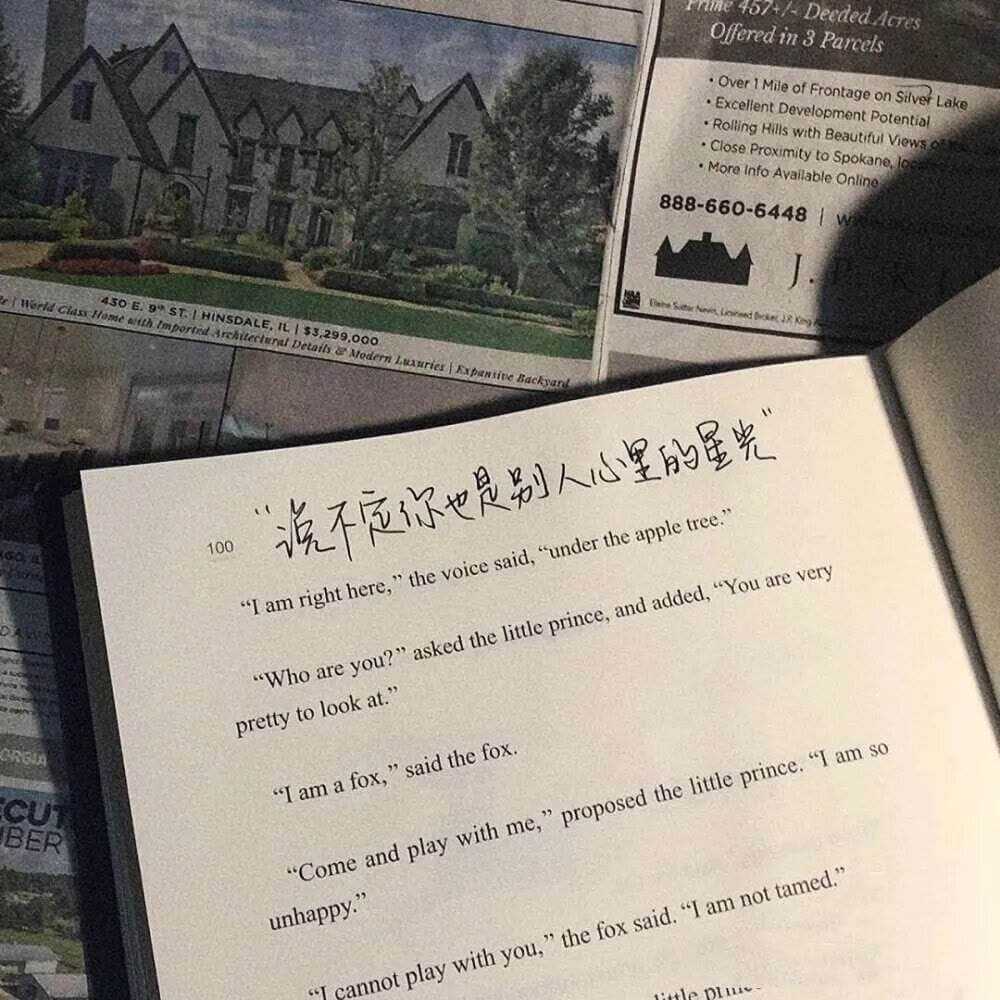 Prime 457+/- Deeded Acres
Offered in 3 Parcels
• Over 1 Mile of Frontage on Silver Lake
• Excellent Development Potential
• Rolling Hills with Beautiful Views
• Close Proximity to Spokane,
• More Info Available Online
888-660-6448 |
J.
Elaine Sutter Nevin, Licensed Broker, J.P. King
430 E. 9th ST. | HINSDALE, IL | $3,299,000
| World Class Home with Imported Architectural Details & Modern Luxuries | Expansive Backyard
“说不定你也是别人心里的星光”
100
“I am right here,” the voice said, “under the apple tree.”
“Who are you?” asked the little prince, and added, “You are very
pretty to look at.”
“I am a fox,” said the fox.
“Come and play with me,” proposed the little prince. “I am so
unhappy.”
“I cannot play with you,” the fox said. “I am not tamed.”
little prince